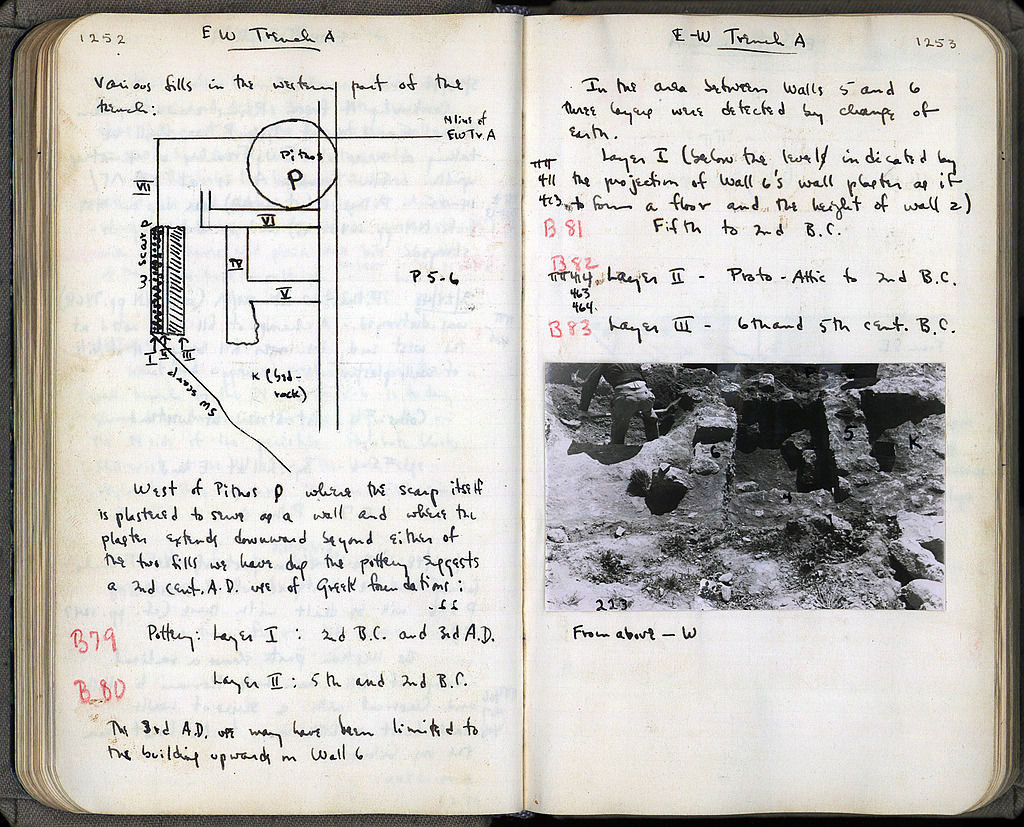 1252
E W Trench A
Various fills in the western part of the
trench:
N line of
EW Tr. A
Pithos
P
VII
VI
IV
V
P 5-6
W scarp
I II III
SW scarp
K (bed-
rock)
West of Pithos P where the scarp itself
is plastered to serve as a wall and where the
plaster extends downward beyond either of
the two fills we have dug the pottery suggests
a 2nd cent. A.D. use of Greek foundations:
B79 Pottery: Layer I : 2nd B.C. and 3rd A.D.
B 80 Layer II : 5th and 2nd B.C.
The 3rd A.D. use may have been limited to
the building upwards on Wall 6
E-W Trench A
1253
In the area between Walls 5 and 6
three layers were detected by change of
earth.
Layer I (below the level indicated by
411 the projection of Wall 6's wall plaster as if
463 to form a floor and the height of wall 2)
B 81 Fifth to 2nd B.C.
B82
414 Layer II - Proto-Attic to 2nd B.C.
463
464
B83 Layer III - 6th and 5th cent. B.C.
6
5
K
4
213
From above - W